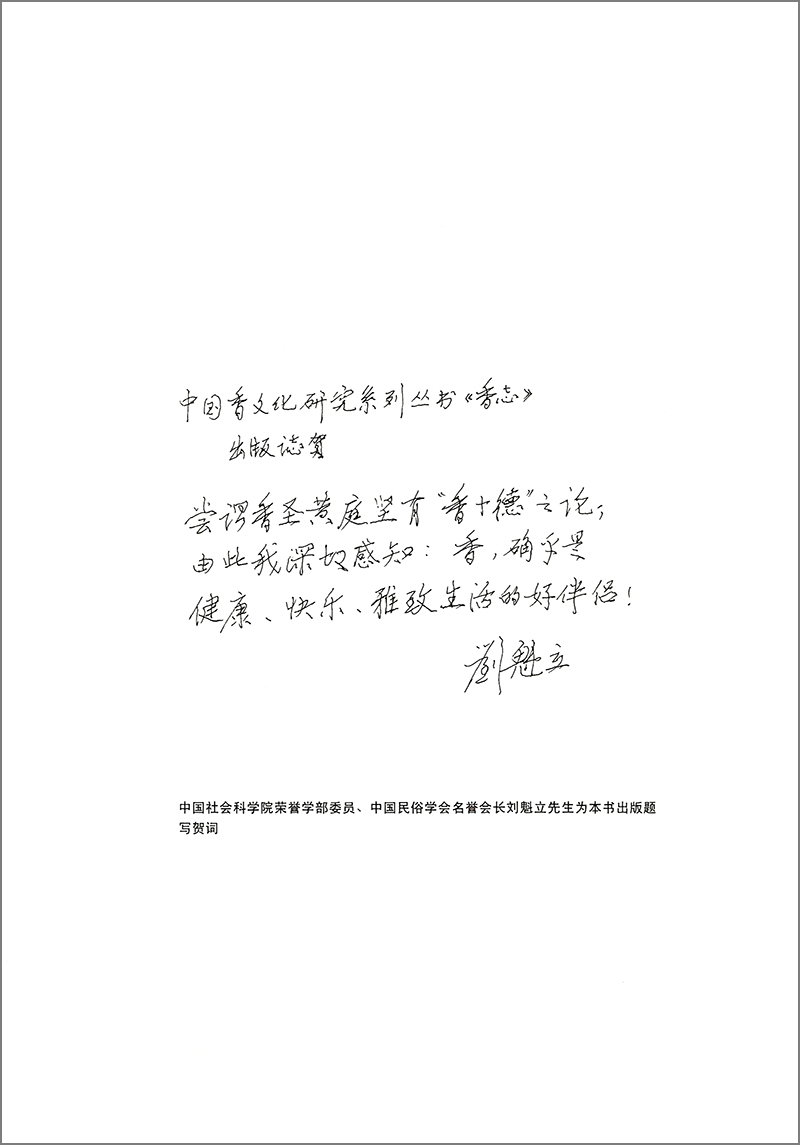 中国香文化研究系列丛书《香志》
出版誌贺
尝谓香圣黄庭坚有“香十德”之论；
由此我深切感知：香，确乎是
健康、快乐、雅致生活的好伴侣！
劉魁立
中国社会科学院荣誉学部委员、中国民俗学会名誉会长刘魁立先生为本书出版题
写贺词